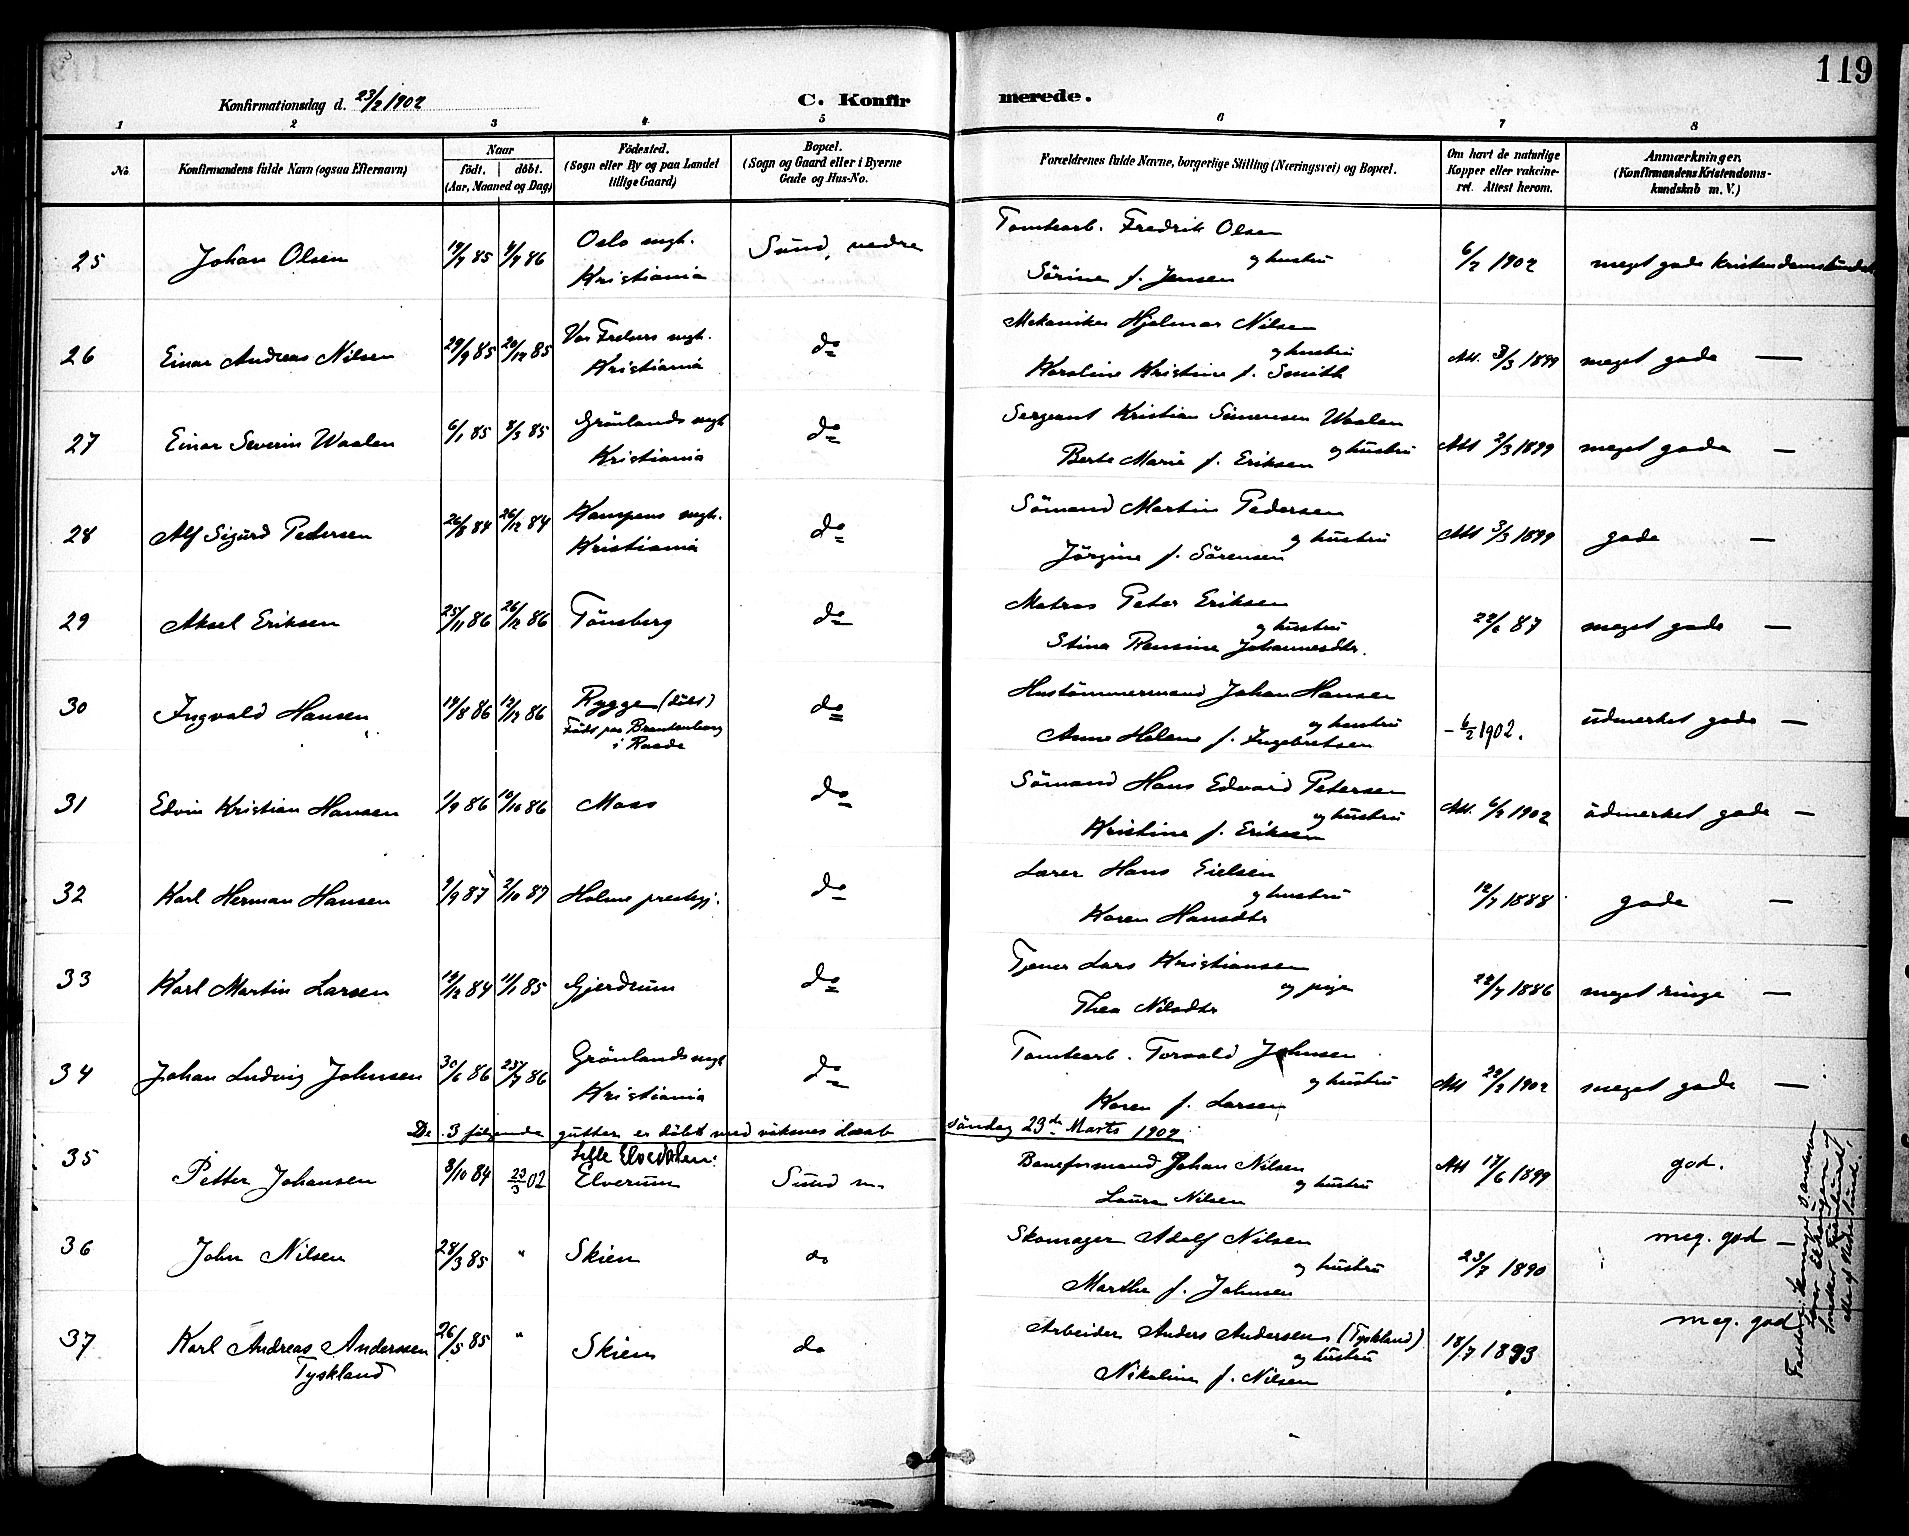 119
Konfirmationsdag d. 23/2 1902
C. Konfirmerede.
1 2 3 4 5 6 7 8
No
Konfirmandens fulde Navn (ogsaa Efternavn)
Naar
født. døbt.
(Aar, Maaned og Dag)
Fødested.
(Sogn eller By og paa Landet
tillige Gaard)
Bopæl.
(Sogn og Gaard eller i Byerne
Gade og Hus-No.
Forældrenes fulde Navne, borgerlige Stilling (Næringsvei) og Bopæl.
Om havt de naturlige
Kopper eller vakcine-
ret. Attest herom.
Anmærkninger.
(Konfirmandens Kristendoms-
kundskab m. V.)
25 Johan Olsen 85 86 Oslo mgh. Kristiania Sund, nedre
Tomtearb. Fredrik Olsen
og hustru
Sörine f. Jensen
6/2 1902 meget gode Kristendomskundsk
26 Einar Andreas Nilsen 29/9 85 20/12 85 Vor Frelsers mgh. Kristiania do
Mekaniker Hjalmar Nilsen
og hustru
Karoline Kristine f. Smith
Att. 3/3 1899 meget gode —
27 Einar Severin Waalen 6/1 85 8/3 85 Grönlands mgh Kristiania do
Sergeant Kristian Simensen Waalen
og hustru
Berte Marie f. Eriksen
Att 2/3 1899 meget gode —
28 Alf Sigurd Pedersen 26/8 84 26/12 84 Kampens mgh. Kristiania do
Sömand Martin Pedersen
og hustru
Jörgine f. Sörensen
Att 3/3 1899 gode —
29 Aksel Eriksen 25/11 86 26/12 86 Tönsberg do
Matros Peter Eriksen
og hustru
Stina Johannesdtr.
22/2 87 meget gode —
30 Ingvald Hansen 19/8 86 12/12 86 Rygge (döbt)
Födt paa Brantenborg
i Raade
do
Hustömmermand Johan Hansen
og hustru
Anne Helene f. Ingebretsen
- 6/2 1902. udmerket gode —
31 Edvin Kristian Hansen 1/9 86 10/10 86 Moss do
Sömand Hans Edvard Petersen
og hustru
Kristine f. Eriksen
Att. 6/2 1902 udmerket gode —
32 Karl Herman Hansen 9/9 87 2/10 87 Holme prestegj. do
Lærer Hans Eielsen
og hustru
Karen Hansdtr
12/7 1888 gode —
33 Karl Martin Larsen 19/12 84 11/1 85 Gjerdrum do
Tjener Lars Kristiansen
og pige
Thea Nilsdtr
22/7 1886 meget ringe —
34 Johan Ludvig Johnsen 30/6 86 25/7 86 Grönlands mgh Kristiania do
Tomtearb. Torvald Johnsen
og hustru
Karen f. Larsen
Att 22/2 1902 meget gode —
De 3 følgende gutter er döbt med voksnes daab söndag 23de Marts 1902
35 Petter Johansen 8/10 84 23/3 02 Lille Elvedalen: Elverum Sund n.
Baneformand Johan Nilsen
og hustru
Laura Nilsen
Att 17/6 1899 god.
36 John Nilsen 28/3 85 " Skien do
Skomager Adolf Nilsen
og hustru
Marthe f. Johnsen
23/7 1890 meg. god —
37 Karl Andreas Anderssen
Tyskland
26/5 85 " Skien do
Arbeider Anders Andersen (Tyskland)
og hustru
Nikoline f. Nilsen
18/7 1893 meg. god